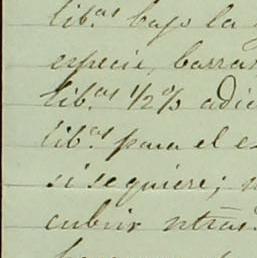 lib.as bajo la
especie, barras
lib.as 1/2 % adic
lib.as para el e
si se quiere;
cubrir ntras.